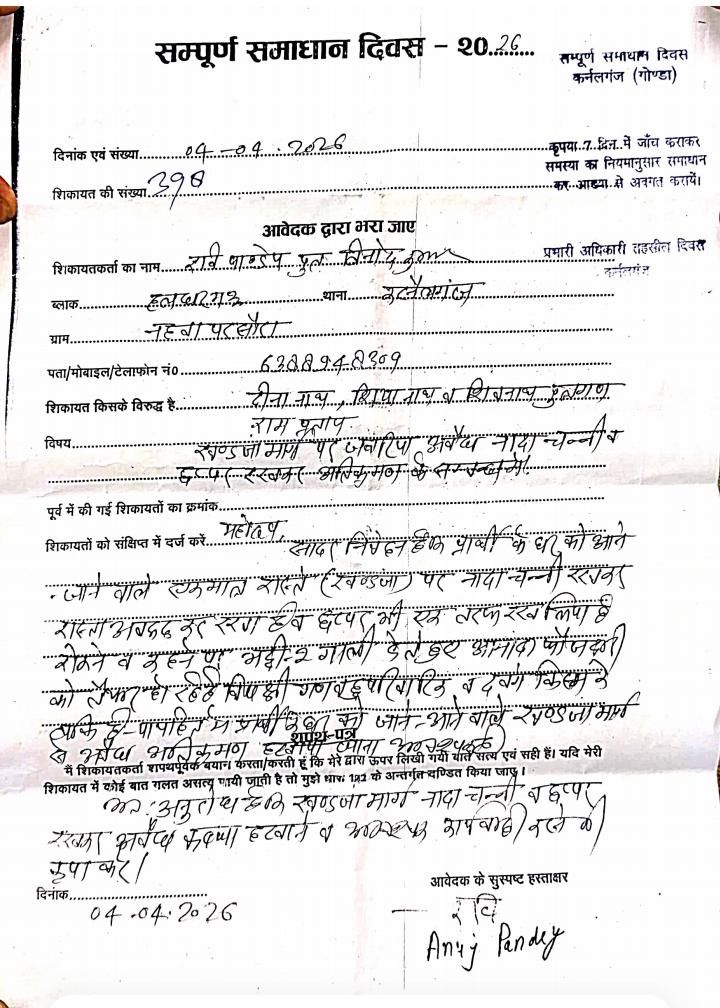 सम्पूर्ण समाधान दिवस - 2026
सम्पूर्ण समाधान दिवस
कर्नलगंज (गोण्डा)
दिनांक एवं संख्या 04-04.2026
कृपया 7 दिन में जाँच कराकर
समस्या का नियमानुसार समाधान
कर आख्या से अवगत करायें।
शिकायत की संख्या 398
आवेदक द्वारा भरा जाए
शिकायतकर्ता का नाम रवि पाण्डेय पुत्र विनोद कुमार
प्रभारी अधिकारी तहसील दिवस
कर्नलगंज
ब्लाक हलधरमऊ थाना कर्नैलगंज
ग्राम नहवा परसौरा
पता/मोबाइल/टेलाफोन नं0 6388948309
शिकायत किसके विरुद्ध है दीनानाथ, शिवनाथ पुत्रगण
राम प्रताप
विषय खण्डजा मार्ग पर अवैध नादा चन्नी व
छप्पर रखकर अतिक्रमण के सम्बन्ध में।
पूर्व में की गई शिकायतों का क्रमांक
शिकायतों को संक्षिप्त में दर्ज करें महोदय,
सादर निवेदन है कि प्रार्थी के घर को आने
जाने वाले एकमात्र रास्ते (खण्डजा) पर नादा चन्नी रखकर
रास्ता अवरुद्ध कर रखा है व छप्पर भी एक तरफ रख लिया है
रोकने व कहने पर भद्दी-2 गाली देते हुए आमादा फौजदारी
को तैयार हो रहे है विपक्षी गण व दबंग किस्म के
व्यक्ति है- प्रार्थी के घर को जाने-आने वाले खण्डजा मार्ग
से अवैध अतिक्रमण हटवाया जाना
शपथ-पत्र
मैं शिकायतकर्ता शपथपूर्वक बयान करता/करती हूं कि मेरे द्वारा ऊपर लिखी गयी बातें सत्य एवं सही हैं। यदि मेरी
शिकायत में कोई बात गलत असत्य पायी जाती है तो मुझे धारा 182 के अन्तर्गत दण्डित किया जाए।
अतः अनुरोध है कि खण्डजा मार्ग नादा चन्नी व छप्पर
रखकर अवैध कब्जा हटवाने व आवश्यक कार्यवाही करने की
कृपा करें।
दिनांक
04.04.2026
आवेदक के सुस्पष्ट हस्ताक्षर
रवि
Anuj Pandey